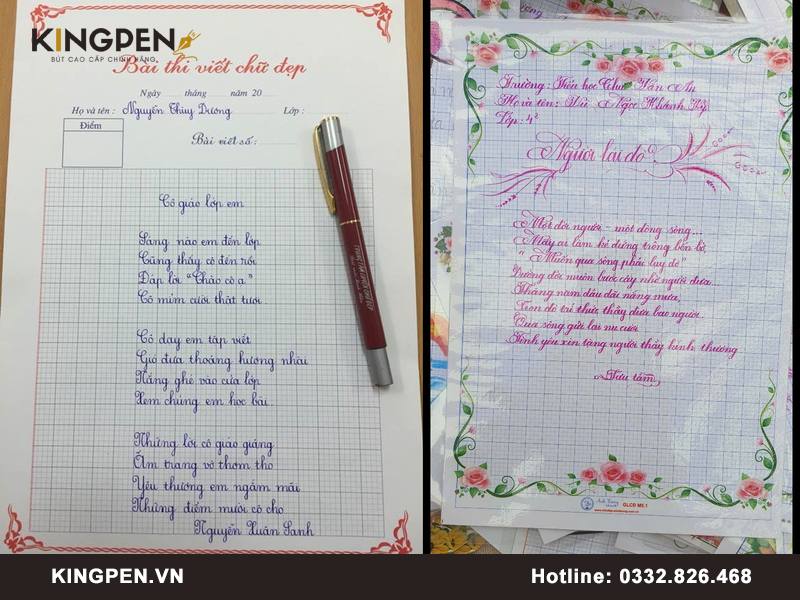 KINGPEN
BÚT CAO CẤP CHÍNH HÃNG
Bài thi viết chữ đẹp
Ngày tháng năm 20
Họ và tên : Nguyễn Thùy Dương Lớp :
Điểm
Bài viết số :
Cô giáo lớp em
Sáng nào em đến lớp
Cũng thấy cô đến rồi
Đáp lời "Chào cô ạ"
Cô mỉm cười thật tươi.
Cô dạy em tập viết
Gió đưa thoảng hương nhài
Nắng ghé vào cửa lớp
Xem chúng em học bài.
Những lời cô giáo giảng
Ấm trang vở thơm tho
Yêu thương em ngắm mãi
Những điểm mười cô cho
Nguyễn Xuân Sanh
Trường: Tiểu học Chu Văn An
Họ và tên: Ngọc Khánh
Lớp: 4²
Người lái đò
Một đời người - một dòng sông...
Mấy ai làm kẻ đứng trông bến bờ,
"Muốn qua sông phải lụy đò"
Đường đời muôn bước cậy nhờ người đưa...
Tháng năm dầu dãi nắng mưa,
Con đò trí thức thầy đưa bao người.
Qua sông gửi lại nụ cười
Tình yêu xin tặng người thầy kính thương
GLCĐ M5.1
KINGPEN.VN
Hotline: 0332.826.468